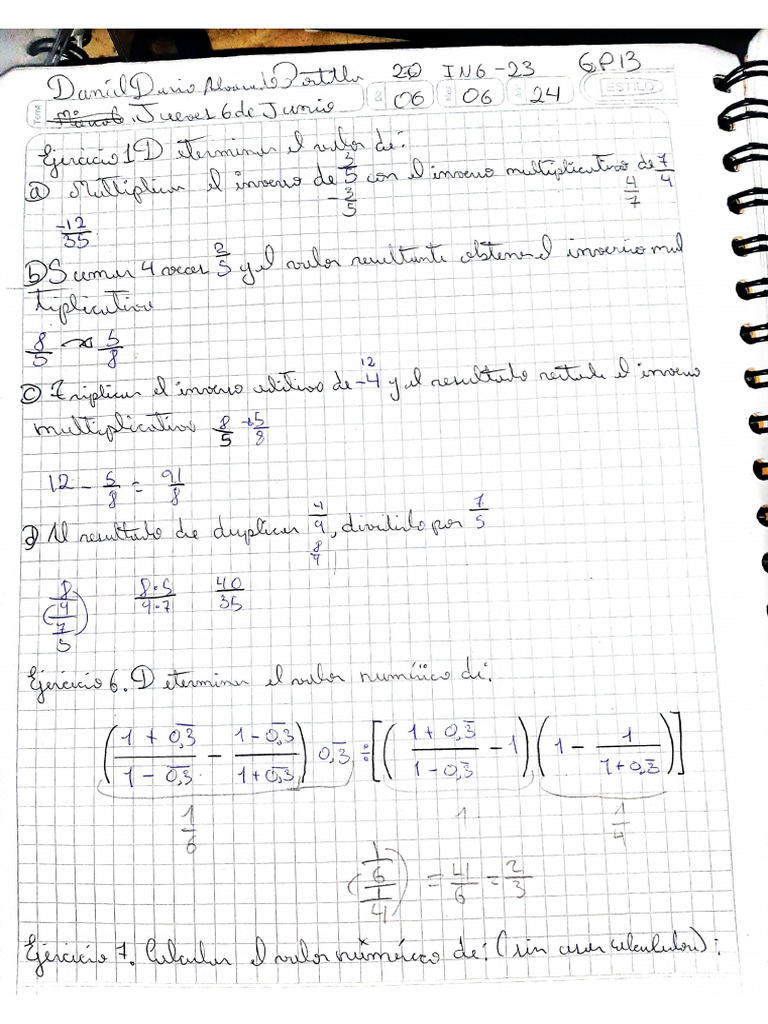 Daniel Dario Alvarado Portilla 20 ING-23 GP13
Tema Jueves 6 de Junio 06 06 24 ESTILO
Ejercicio 1 Determinar el valor de:
a) Multiplicar el inverso de 3/5 con el inverso multiplicativo de 7/4
-3/5 4/7
-12/35
b) Sumar 4 veces 2/5 y el valor resultante obtener el inverso mul
tiplicativo
8/5 ~ 5/8
c) Triplicar el inverso aditivo de -4 y el resultado restarle el inverso
12
multiplicativo 8/5 → 5/8
12 - 5/8 = 91/8
d) Al resultado de duplicar 4/9, dividirlo por 7/5
8/9
(8/9)/(7/5) 8·5/9·7 40/35
Ejercicio 6. Determinar el valor numérico de:
((1 + 0,3̅)/(1 - 0,3̅) - (1 - 0,3̅)/(1 + 0,3̅)) 0,3̅ ÷ [((1 + 0,3̅)/(1 - 0,3̅) - 1)(1 - 1/(1 + 0,3̅))]
1/6 1 1/4
(1/6)/(1/4) = 4/6 = 2/3
Ejercicio 7. Calcular el valor numérico de: (sin usar calculadora):